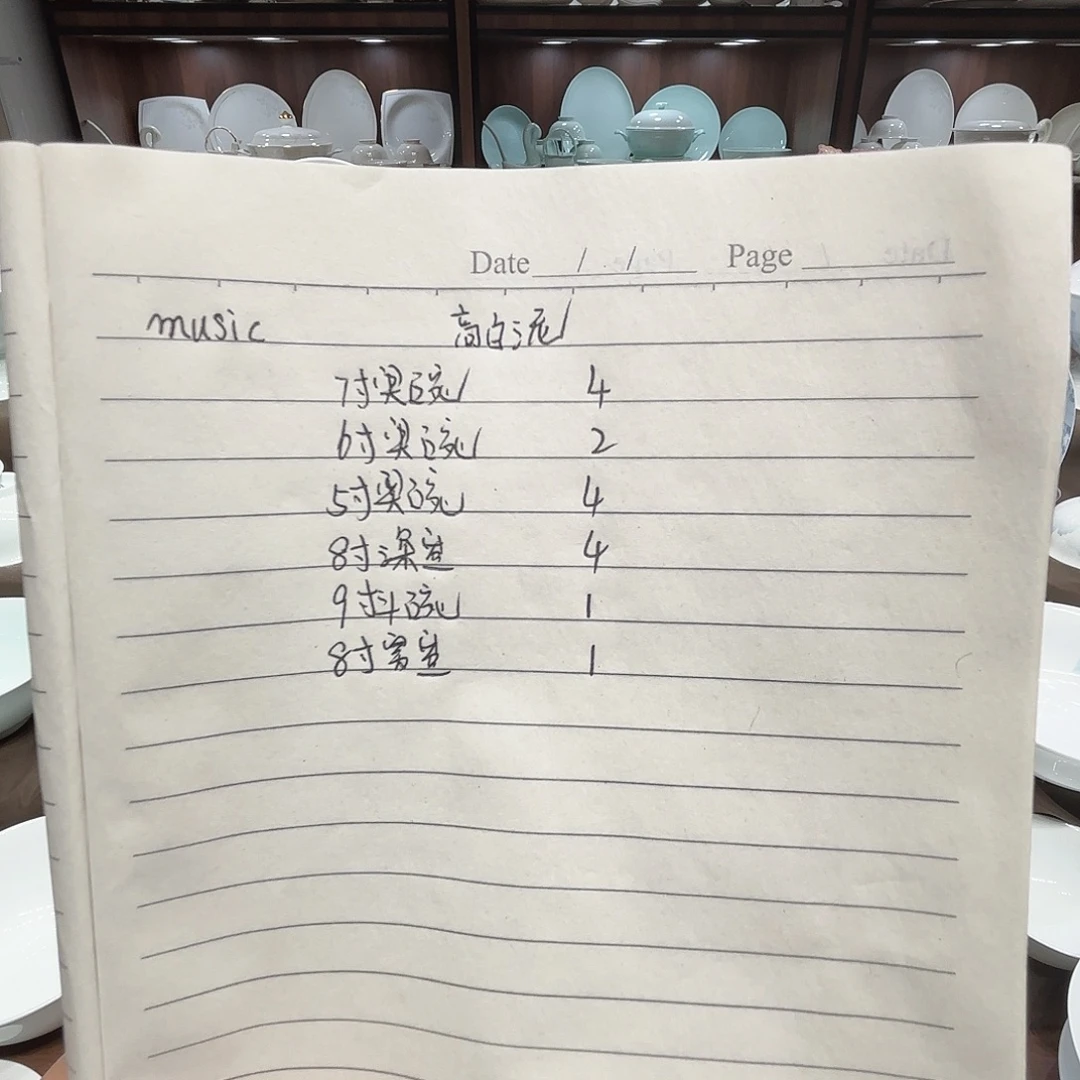 Date / / Page
music 高白泥
7寸奥碗 4
6寸奥碗 2
5寸奥碗 4
8寸深盘 4
9寸斗碗 1
8寸 盘 1